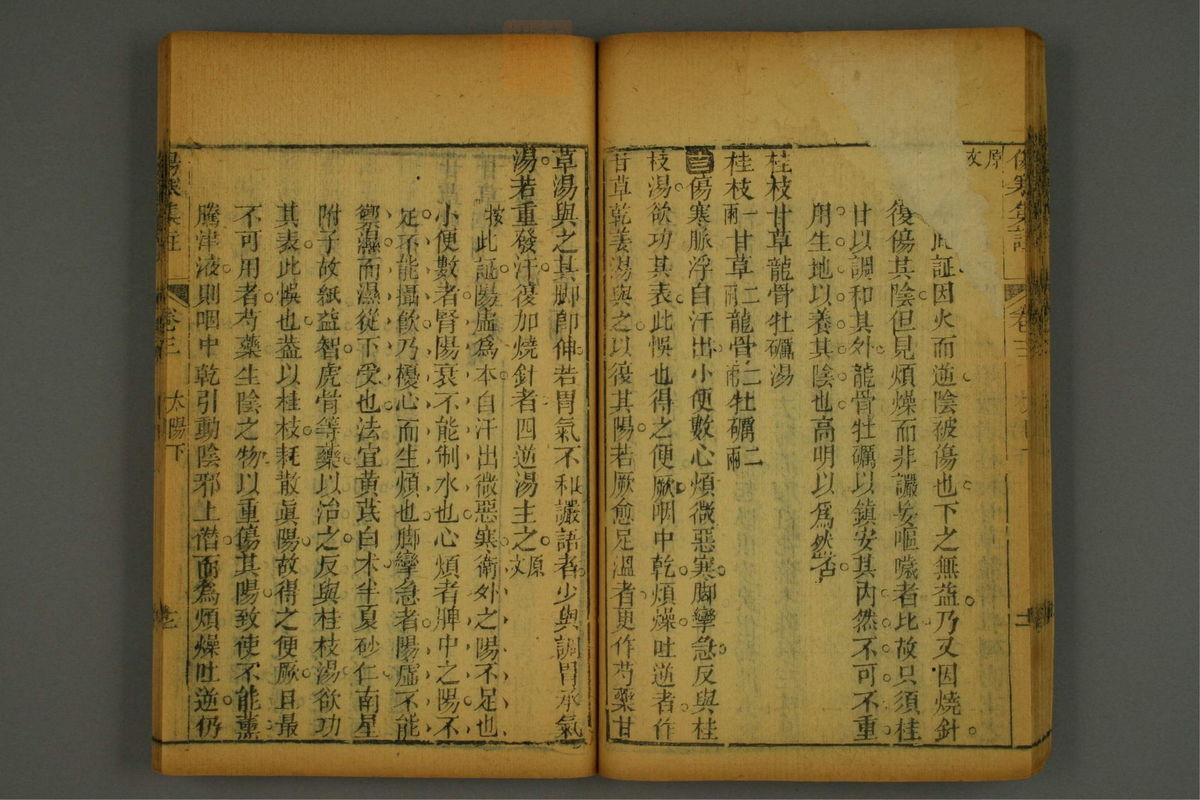 原文
此証因火而逆陰被傷也下之無益乃又因燒針
復傷其陰但見煩燥而非讝妄嘔噦者比故只須桂
甘以調和其外龍骨牡礪以鎮安其內然不可不重
用生地以養其陰也高明以為然否
桂枝甘草龍骨牡礪湯
桂枝一兩甘草二兩龍骨二兩牡礪二兩
傷寒脈浮自汗出小便數心煩微惡寒脚攣急反與桂
枝湯欲功其表此悞也得之便厥咽中乾煩燥吐逆者作
甘草乾姜湯與之以復其陽若厥愈足溫者更作芍藥甘
卷三
草湯與之其脚即伸若胃氣不和讝語者少與調胃承氣
湯若重發汗復加燒針者四逆湯主之原文
按此証陽虛為本自汗出微惡寒衛外之陽不足也
小便數者腎陽衰不能制水也心煩者脾中之陽不
足不能攝飲乃擾心而生煩也脚攣急者陽虛不能
禦濕而濕從下受也法宜黃芪白术半夏砂仁南星
附子故紙益智虎骨等藥以治之反與桂枝湯欲功
其表此悞也蓋以桂枝耗散眞陽故得之便厥且最
不可用者芍藥生陰之物以重傷其陽致使不能薰
騰津液則咽中乾引動陰邪上僭而為煩燥吐逆仍
傷寒集註
卷三
太陽下